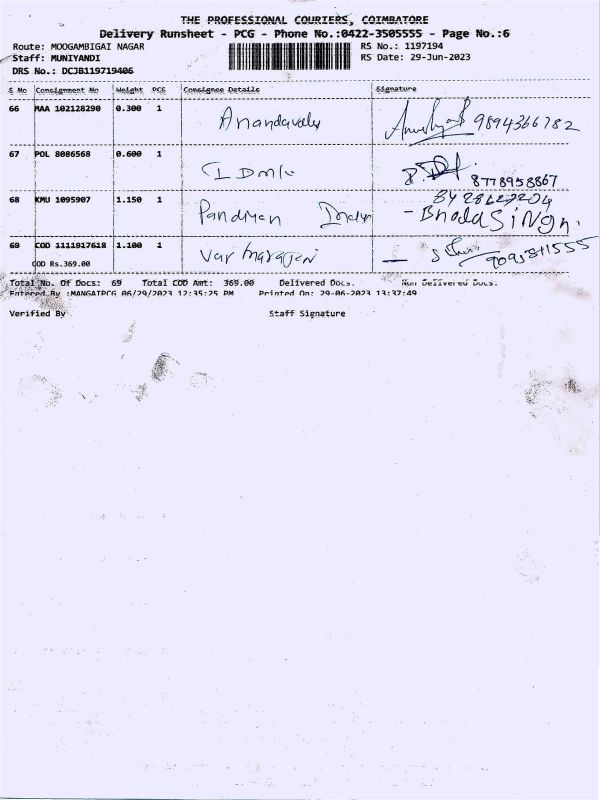 THE PROFESSIONAL COURIERS, COIMBATORE
Delivery Runsheet - PCG - Phone No.:0422-3505555 - Page No.:6
Route: MOOGAMBIGAI NAGAR RS No.: 1197194
Staff: MUNIYANDI RS Date: 29-Jun-2023
DRS No.: DCJB119719406
S No Consignment No Weight PCS Consignee Details Signature
66 MAA 102128290 0.300 1 Anandavally 9894366782
67 POL 8086568 0.600 1 8778958867
68 KMU 1095907 1.150 1 Pandiyan
69 COD 1111917618 1.100 1
COD Rs.369.00
Total No. Of Docs: 69 Total COD Amt: 369.00 Delivered Docs. Non Delivered Docs.
Entered By :MANGATPCG 06/29/2023 12:35:25 PM Printed On: 29-06-2023 13:37:49
Verified By Staff Signature